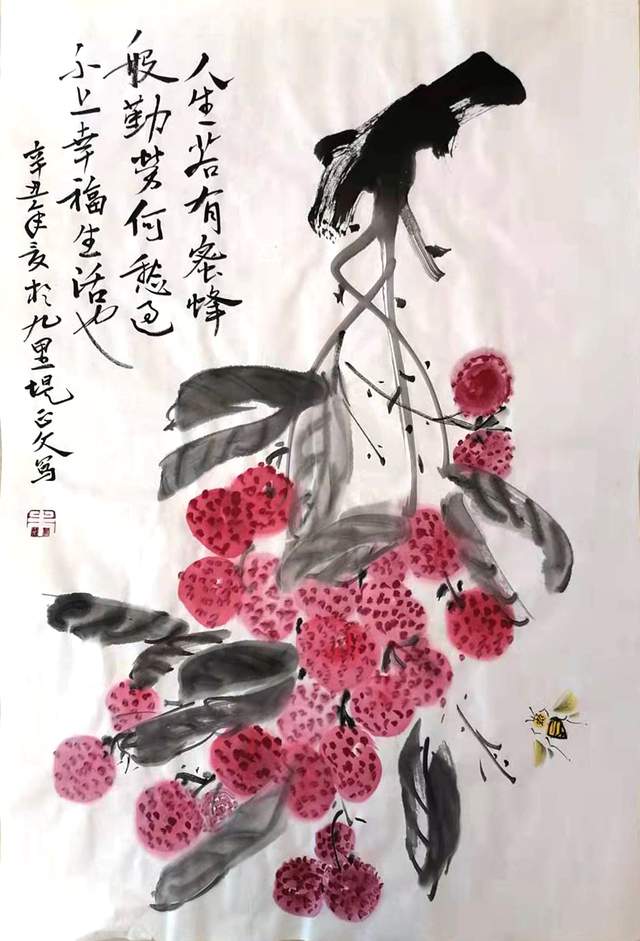 人生若有蜜蜂
般勤劳何愁过
不上幸福生活也
辛丑年夏於九里堤正文写